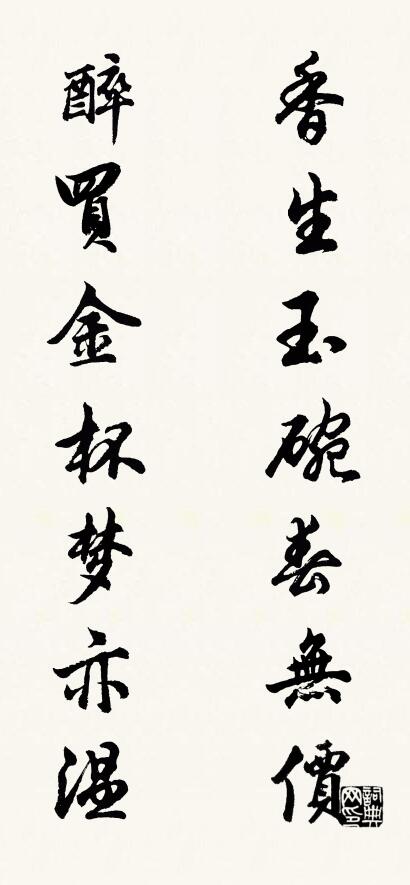 香生玉碗春無價
醉買金杯梦亦温
詞典网印